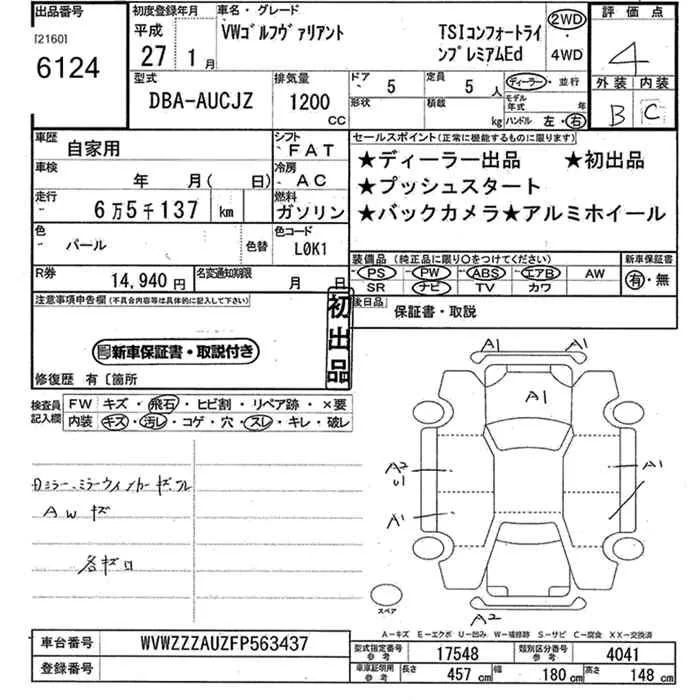 出品番号
[2160]
6124
初度登録年月
平成
27年 1月
車名・グレード
VWゴルフヴァリアント
TSIコンフォートライ
ンプレミアムEd
2WD
・
4WD
評価点
4
外装 内装
B C
型式
DBA-AUCJZ
排気量
1200
CC
ドア 5
定員 5 人
形状
積載 kg
ディーラー・並行
モデル年式 年
ハンドル 左・右
車歴 自家用
シフト FAT
車検 年 月( 日)
冷房 AC
走行 6万5千137 km
燃料 ガソリン
色 パール
色替
色コード L0K1
R券 14,940円
名変通知期限 月 日
セールスポイント(正常に機能するものに限ります)
★ディーラー出品 ★初出品
★プッシュスタート
★バックカメラ★アルミホイール
装備品 (純正品に限り○をつけてください)
PS・PW・ABS・エアB・AW
SR ナビ TV カワ
新車保証書
有・無
後日品 保証書・取説
注意事項申告欄(不具合内容等は具体的に記入して下さい)
初出品
新車保証書・取説付き
修復歴 有〔箇所
検査員
記入欄
FW キズ・飛石・ヒビ割・リペア跡・×要
内装 キズ・汚レ・コゲ・穴・スレ・キレ・破レ
AWキズ
A1 A1
A1
A2
U1
A1
A1
A2
スペア
A-キズ E-エクボ U-凹み W-補修跡 S-サビ C-腐食 XX-交換済
車台番号 WVWZZZAUZFP563437
登録番号
型式指定番号 参考 17548
類別区分番号 参考 4041
車庫証明用 参考 長さ 457cm 幅 180cm 高さ 148cm